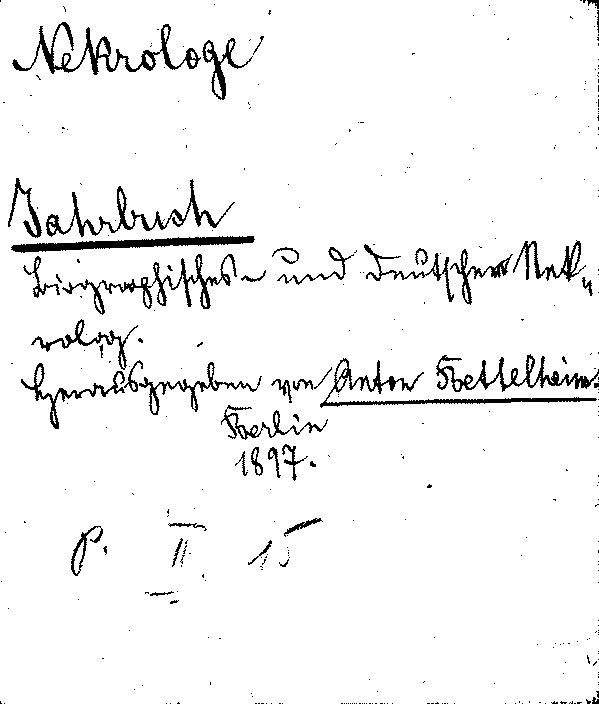 Nekrologe
Jahrbuch
Biographisches - und deutscher Nek-
rolog.
Herausgegeben von Anton Bettelheim.
Berlin
1897.
P. II 15